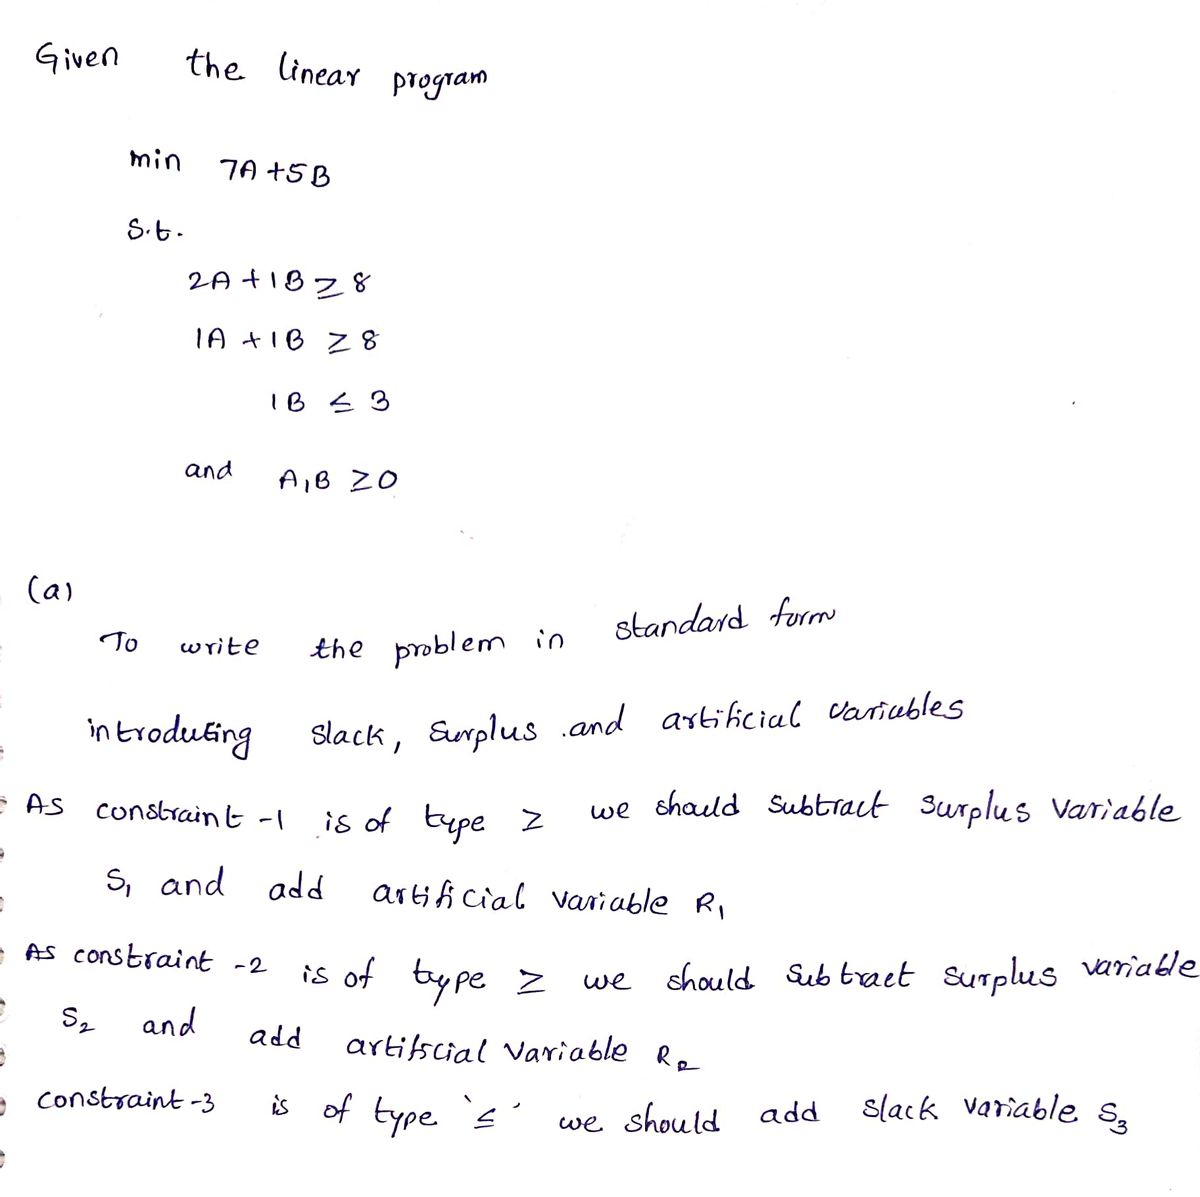 Given the linear program
min 7A + 5B
s.t.
2A + 1B ≥ 8
1A + 1B ≥ 8
1B ≤ 3
and A, B ≥ 0
(a)
To write the problem in standard form
introducing slack, surplus and artificial variables
As constraint -1 is of type ≥ we should subtract surplus variable
S₁ and add artificial variable R₁
As constraint -2 is of type ≥ we should subtract surplus variable
S₂ and add artificial variable R₂
constraint -3 is of type '≤' we should add slack variable S₃